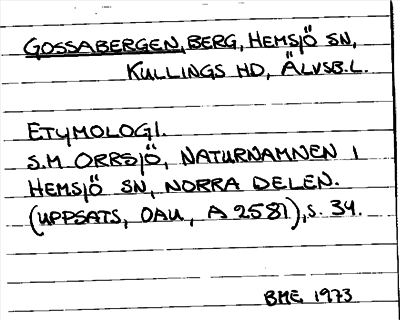 GOSSABERGEN, BERG, HEMSJÖ SN,
KULLINGS HD, ÄLVSB.L.
ETYMOLOGI.
S.M ORRSJÖ, NATURNAMNEN I
HEMSJÖ SN, NORRA DELEN.
(UPPSATS, OAU, A 2581), S. 34.
BME 1973